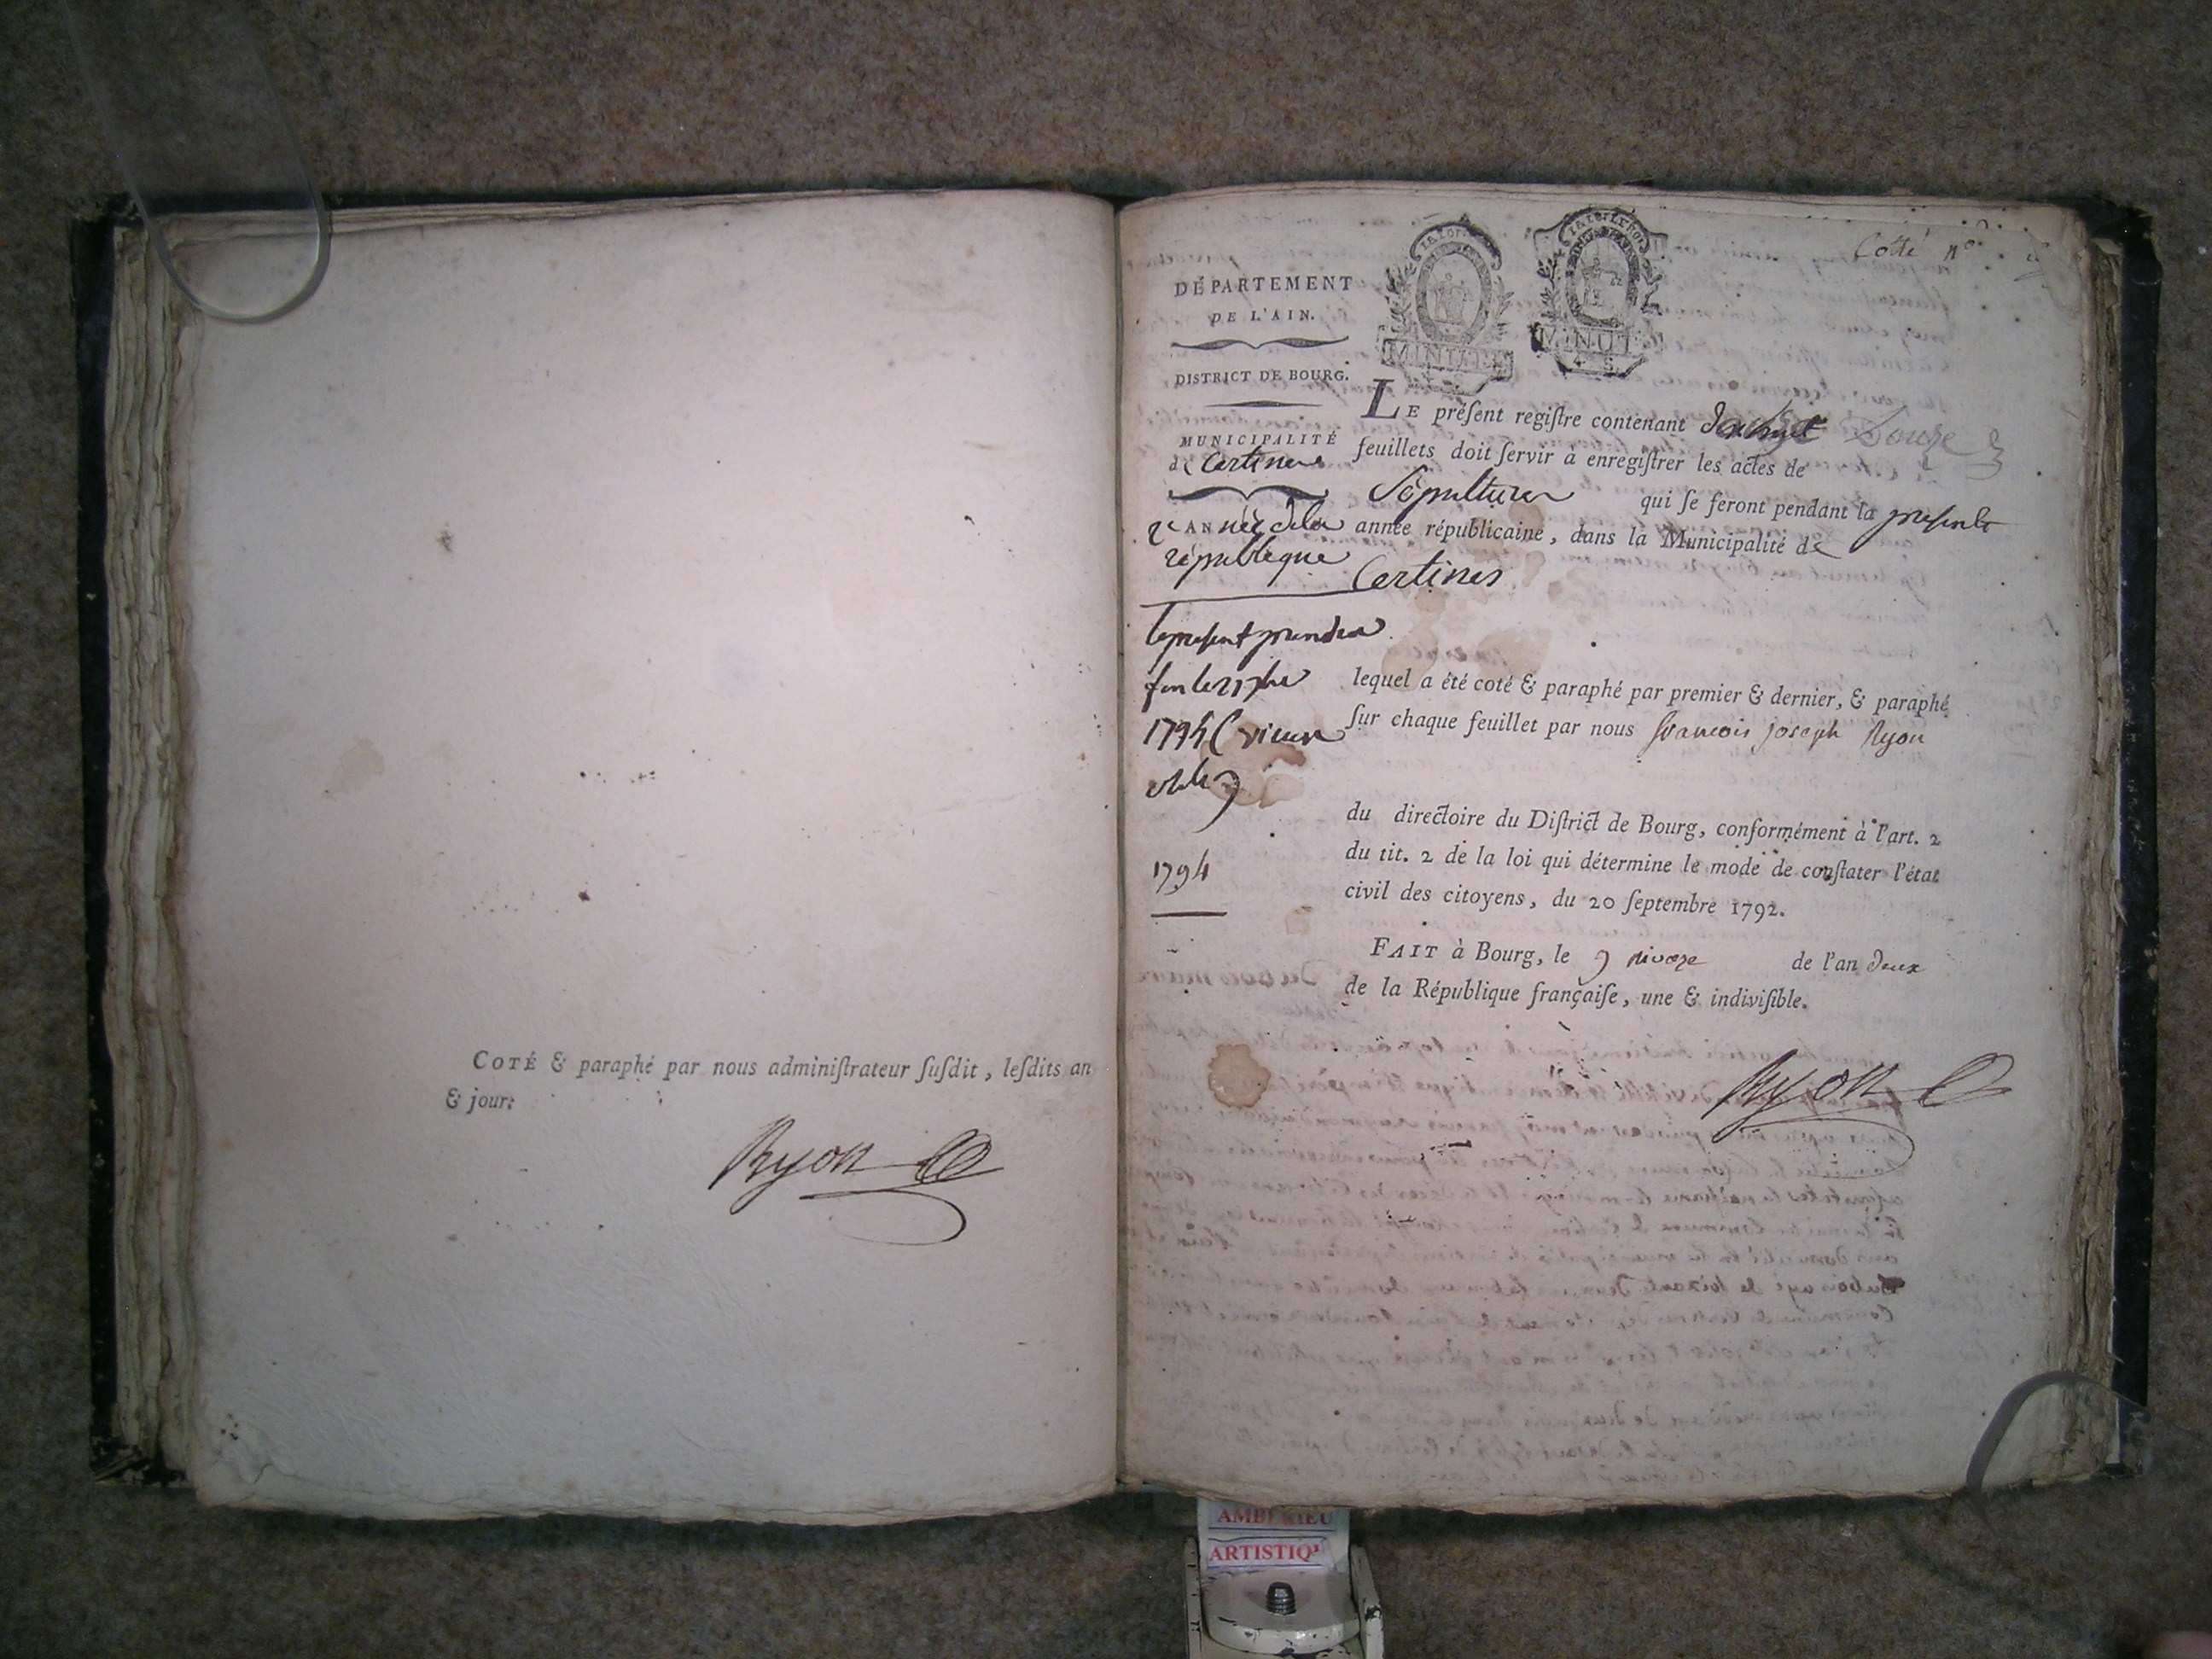 COTÉ & paraphé par nous administrateur susdit, lesdits an
& jour:
Ryon
Cotté n°
LA LOI
LA LOI LE ROI
MINUTE
MINUTE
4 S
DÉPARTEMENT
DE L'AIN.
DISTRICT DE BOURG.
MUNICIPALITÉ
de Certines
2e ANnée de la
république
le present prendra
fin le 21 7bre
1794 (vieux
stile)
1794
LE présent registre contenant Douze
feuillets doit servir à enregistrer les actes de
Sépultures qui se feront pendant la presente
année républicaine, dans la Municipalité de
Certines
lequel a été coté & paraphé par premier & dernier, & paraphé
sur chaque feuillet par nous francois joseph Ryon
du directoire du District de Bourg, conformément à l'art. 2
du tit. 2 de la loi qui détermine le mode de constater l'état
civil des citoyens, du 20 septembre 1792.
FAIT à Bourg, le 9 nivoze de l'an deux
de la République française, une & indivisible.
Ryon
AMBERIEU
ARTISTIQ